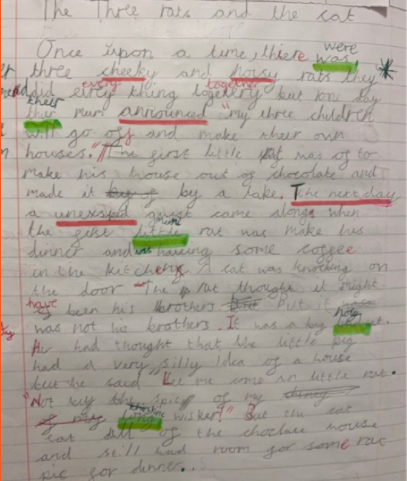 The Three rats and the cat
were
Once upon a time, there was
three cheeky and noisy rats they
every together
did evrey thing togetery but one day
their
ther mum announced "my three children
will go off and make their own
houses." The first little rat was of to
make his house out of chocolate and
made it by a lake. The next day
a unexspted geust came alongs when
the first little rat was make his
dinner and was having some coffee
in the kitchen. A cat was knocking on
the door The rat thought it might
have been his brothers But it
was not his brothers. It was a big
He had thought that the little pig
had a very silly Idea of a house
but he said "Let me come in little rat."
"Not by the of my
wisker!" But the cat
eat all of the choclate house
and still had room for some rat
pie for dinner...